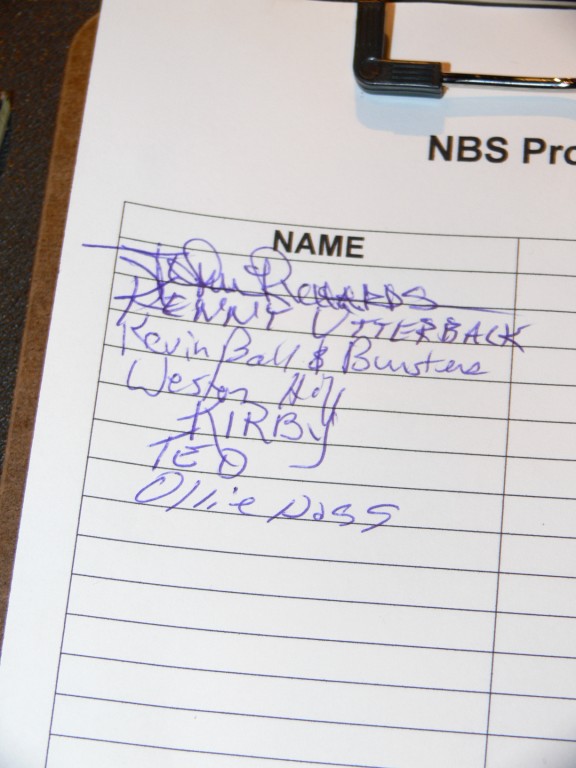 NBS Pro
NAME
John Richards
KENNY UTTERBACK
Kevin Ball & Bunsters
Weston Hill
KIRBY
TED
Ollie Nass